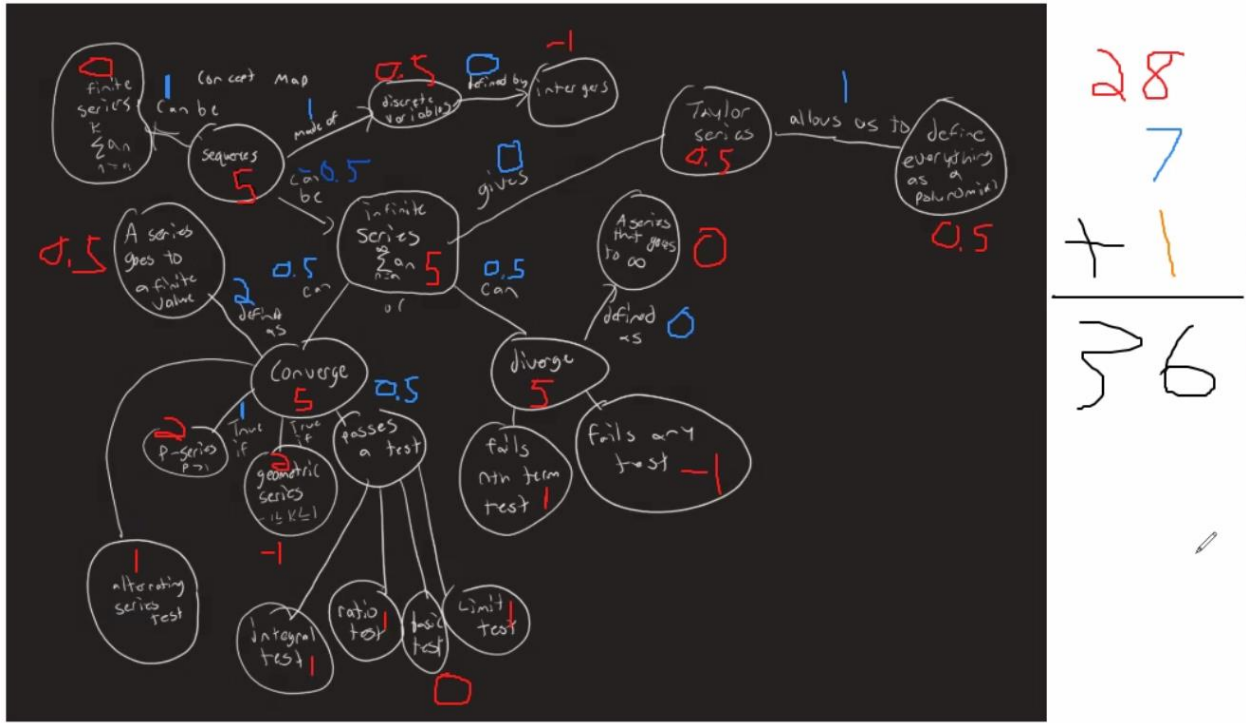 0
finite
series
k
∑ an
n=n
1
Concept Map
can be
sequences
5
1
made of
0.5
discrete
variables
0
defined by
-1
intergers
0.5
can
be
infinite
series
∞
∑ an
n=n
5
or
0
gives
Taylor
series
0.5
1
allows us to
define
everything
as a
polynomial
0.5
0.5
A series
goes to
a finite
value
2
defined
as
0.5
can
0.5
can
A series
that goes
to ∞
0
defined
as
0
Converge
5
diverge
5
0.5
2
P-series
P>1
1
True
if
True
if
2
geometric
series
-1≤K≤1
-1
passes
a test
fails
nth term
test
1
fails any
test
-1
1
alternating
series
test
integral
test
1
ratio
test
1
basic
test
0
Limit
test
1
28
7
+ 1
36